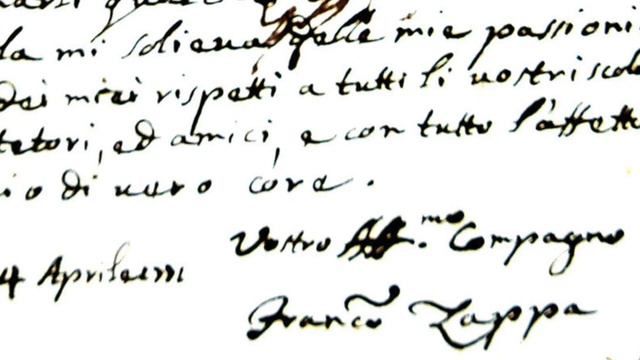 la mi solieua delle mie passioni
dei miei rispetti a tutti li uostri scol
tetori, ed amici, e con tutto l'affetto
io di uero core.
Vostro Aff.mo Compagno
4 Aprile
Franco Zappa